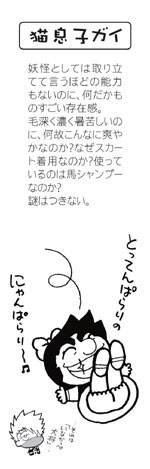 猫息子ガイ
妖怪としては取り立
てて言うほどの能力
もないのに、何だかも
のすごい存在感。
毛深く濃く暑苦しいの
に、何故こんなに爽や
かなのか?なぜスカー
ト着用なのか?使って
いるのは馬シャンプー
なのか?
謎はつきない。
とってんぱらりの
にゃんぱらり〜♪